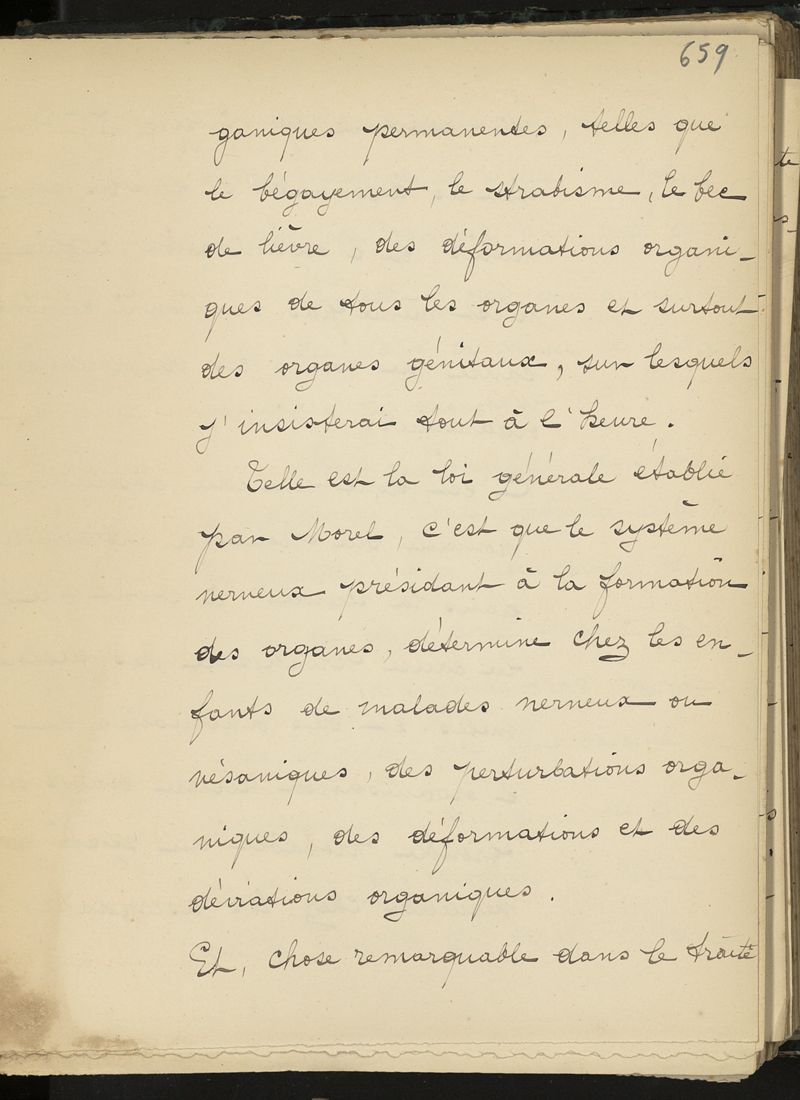 659
ganiques permanentes, telles que
le bégayement, le strabisme, le bec
de lièvre, des déformations organi-
ques de tous les organes et surtout
des organes génitaux, sur lesquels
j'insisterai tout à l'heure.
Telle est la loi générale établie
par Morel, c'est que le système
nerveux présidant à la formation
des organes, détermine chez les en-
fants de malades nerveux ou
vésaniques, des perturbations orga-
niques, des déformations et des
déviations organiques.
Et, chose remarquable dans le traité